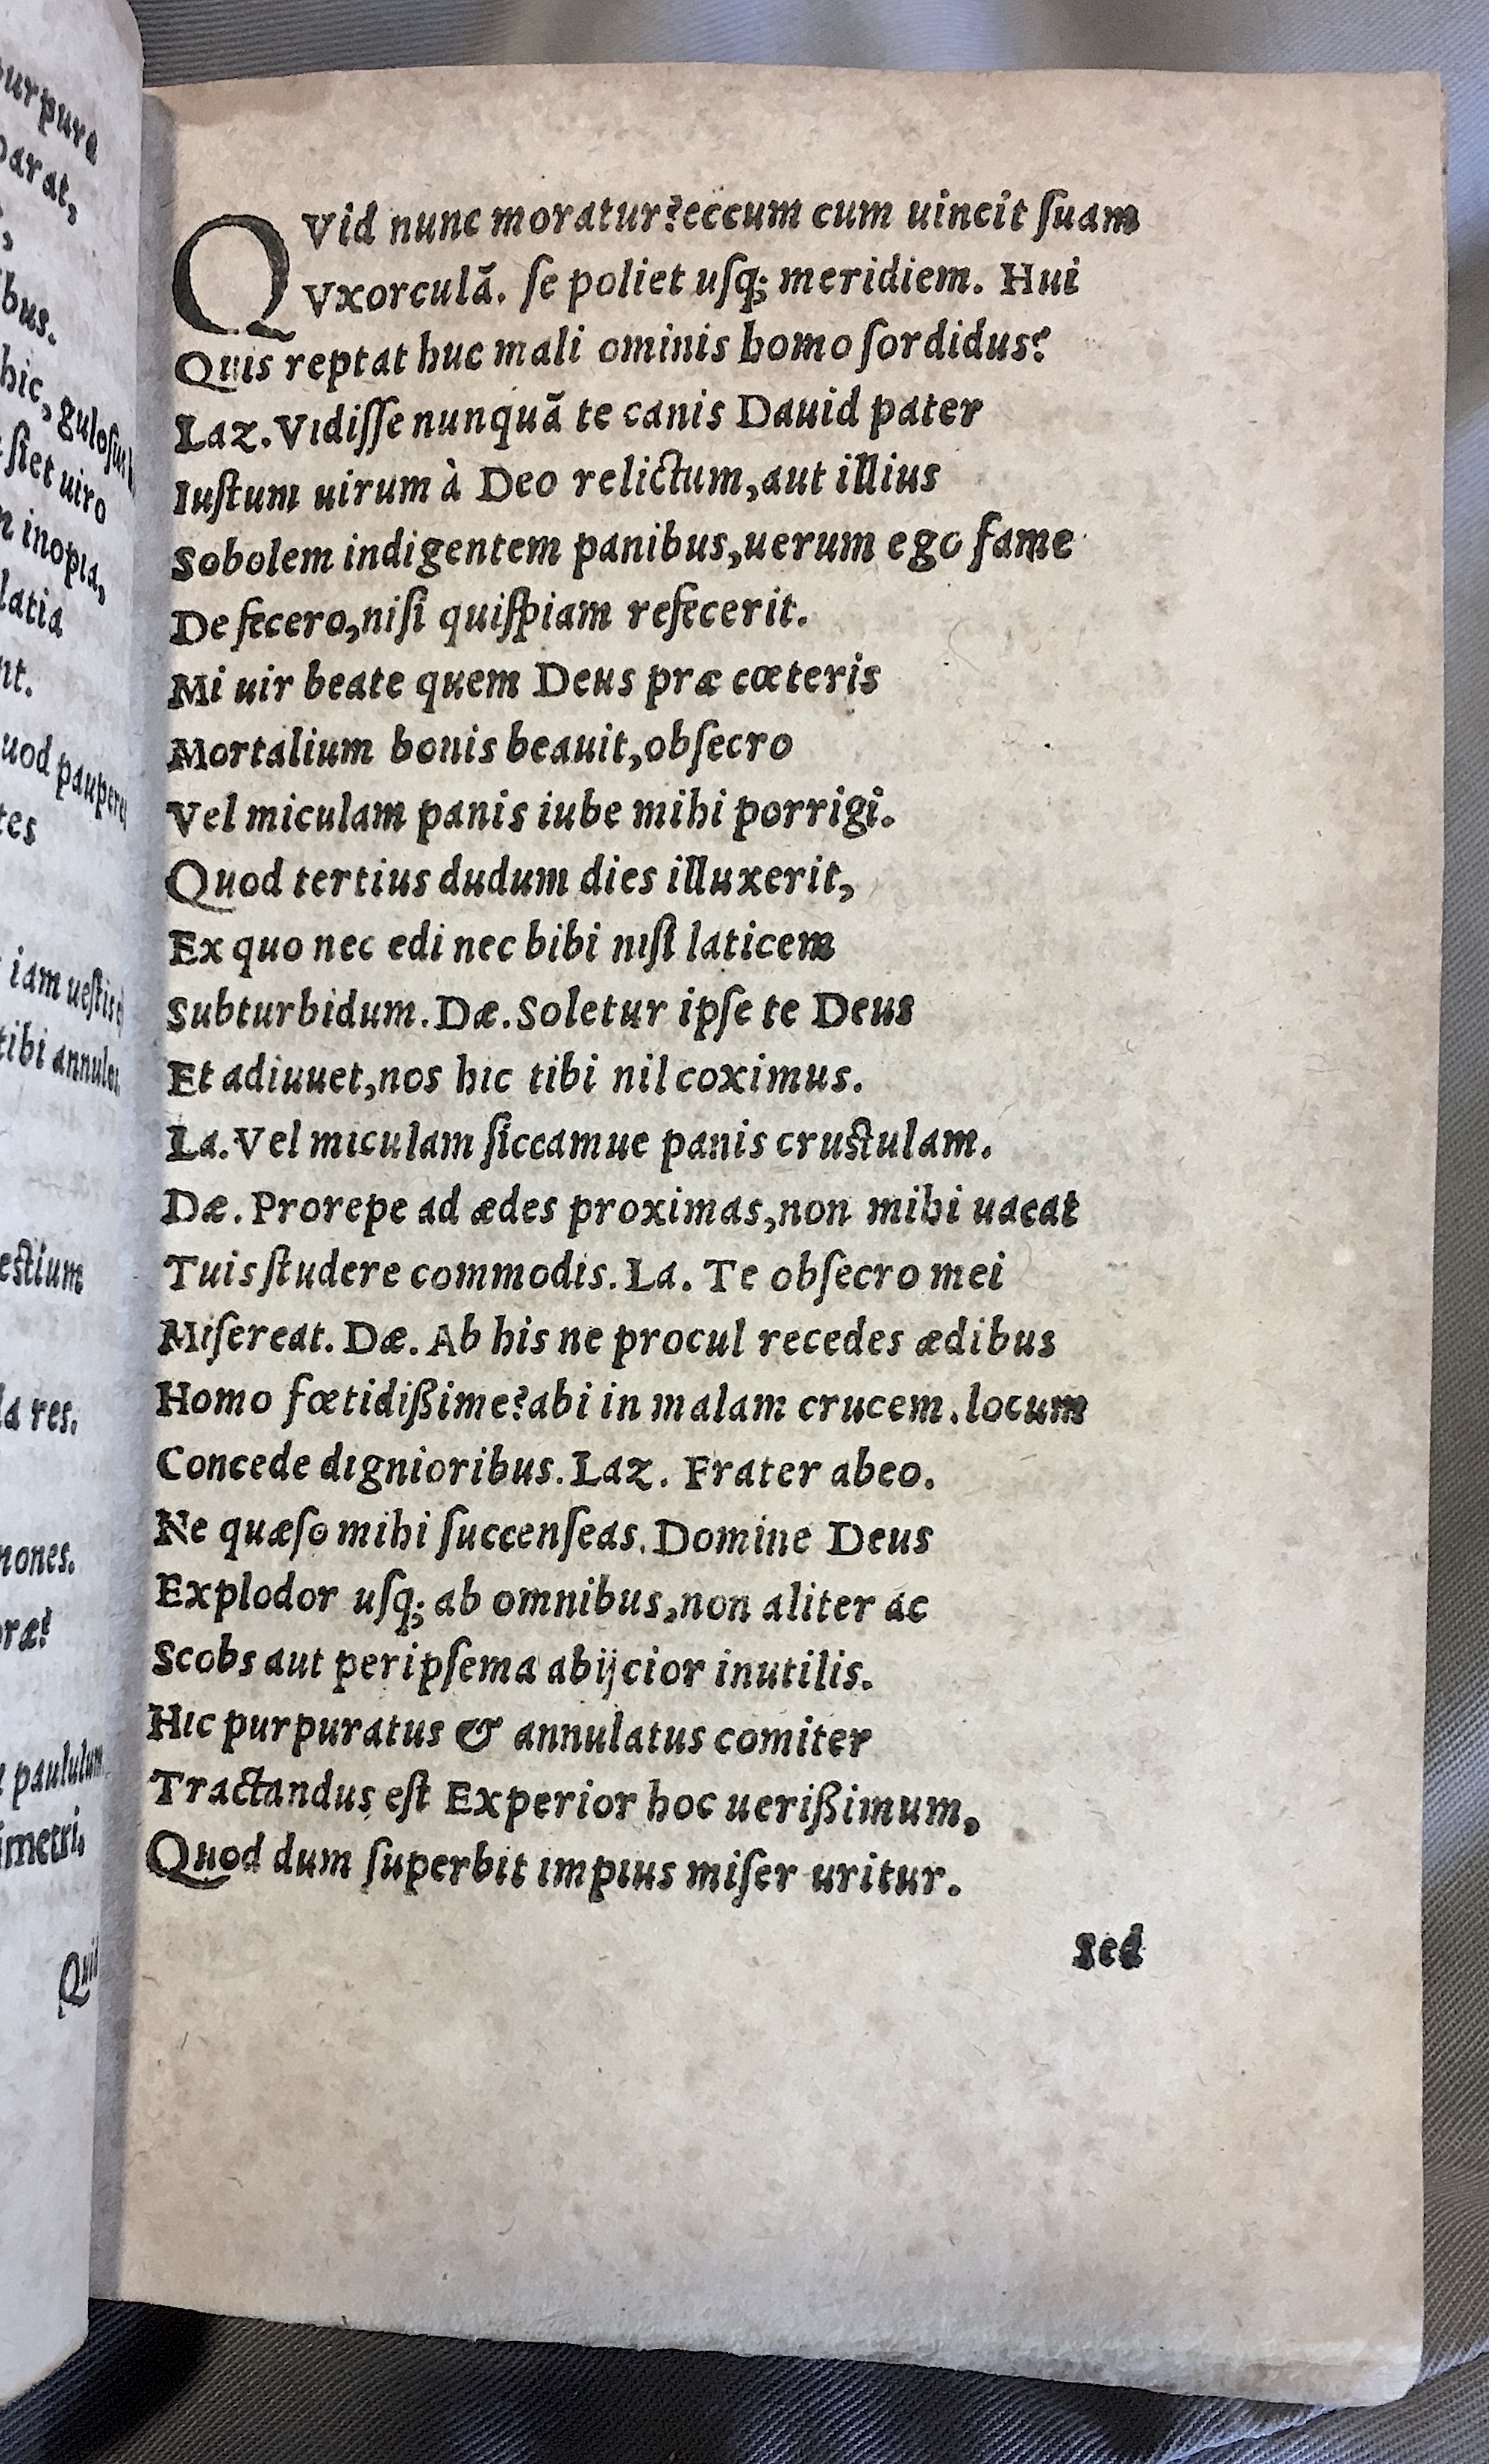 QVid nunc moratur? eccum cum uincit ſuam
Vxorculã. ſe poliet uſq; meridiem. Hui
Quis reptat huc mali ominis homo ſordidus?
Laz. Vidiſſe nunquã te canis Dauid pater
Iuſtum uirum à Deo relictum, aut illius
Sobolem indigentem panibus, uerum ego fame
Defecero, niſi quiſpiam refecerit.
Mi uir beate quem Deus præ cœteris
Mortalium bonis beauit, obſecro
Vel miculam panis iube mihi porrigi.
Quod tertius dudum dies illuxerit,
Ex quo nec edi nec bibi niſi laticem
Subturbidum. Dæ. Soletur ipſe te Deus
Et adiuuet, nos hic tibi nil coximus.
La. Vel miculam ſiccamue panis cruſtulam.
Dæ. Prorepe ad ædes proximas, non mihi uacat
Tuis ſtudere commodis. La. Te obſecro mei
Miſereat. Dæ. Ab his ne procul recedes ædibus
Homo fœtidißime? abi in malam crucem. locum
Concede dignioribus. Laz. Frater abeo.
Ne quæſo mihi ſuccenſeas. Domine Deus
Explodor uſq; ab omnibus, non aliter ac
Scobs aut peripſema abijcior inutilis.
Hic purpuratus & annulatus comiter
Tractandus eſt Experior hoc uerißimum,
Quod dum ſuperbit impius miſer uritur.
Sed